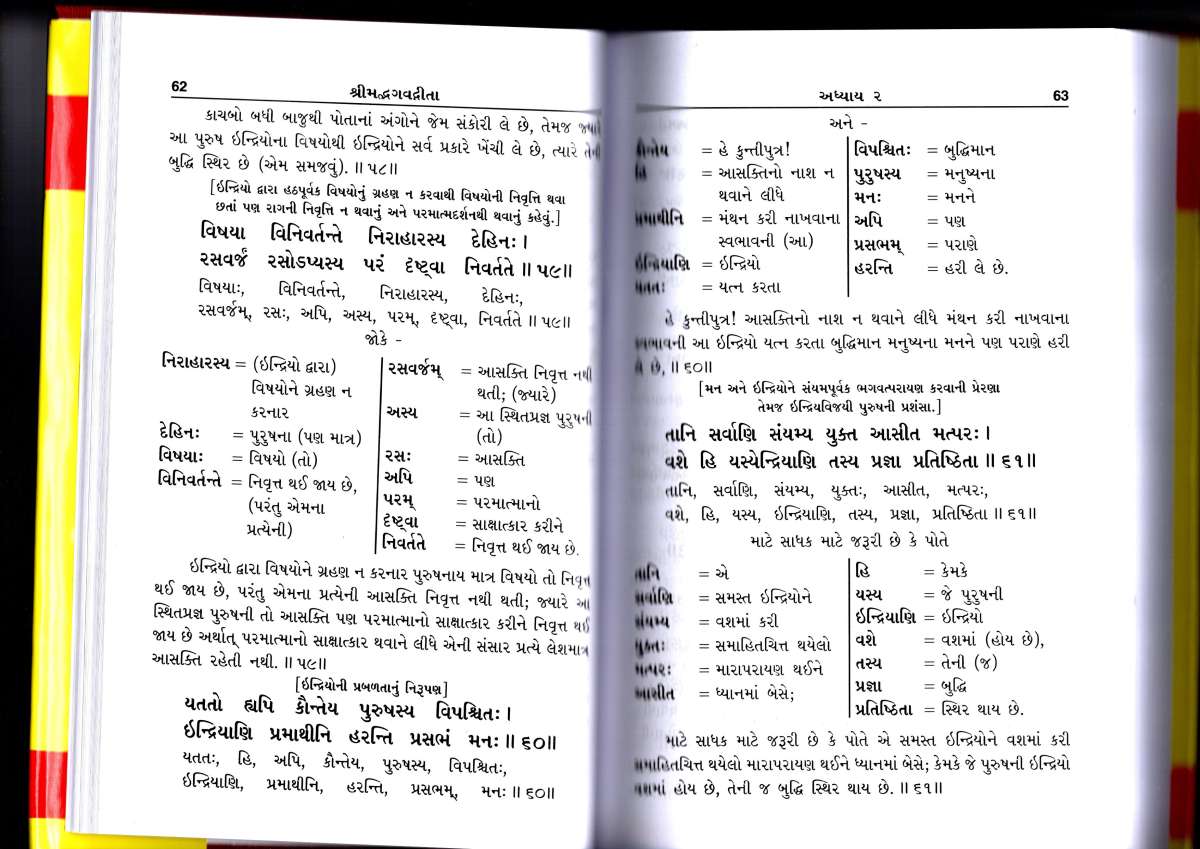 62
શ્રીમદ્ભગવદ્ગીતા
કાચબો બધી બાજુથી પોતાનાં અંગોને જેમ સંકોરી લે છે, તેમજ જ્યારે
આ પુરુષ ઇન્દ્રિયોના વિષયોથી ઇન્દ્રિયોને સર્વ પ્રકારે ખેંચી લે છે, ત્યારે તેની
બુદ્ધિ સ્થિર છે (એમ સમજવું). ॥ ૫૮॥
[ઇન્દ્રિયો દ્વારા હઠપૂર્વક વિષયોનું ગ્રહણ ન કરવાથી વિષયોની નિવૃત્તિ થવા
છતાં પણ રાગની નિવૃત્તિ ન થવાનું અને પરમાત્મદર્શનથી થવાનું કહેવું.]
વિષયા વિનિવર્તન્તે નિરાહારસ્ય દેહિનઃ।
રસવર્જં રસોઽપ્યસ્ય પરં દૃષ્ટ્વા નિવર્તતે ॥ ૫૯॥
વિષયાઃ, વિનિવર્તન્તે, નિરાહારસ્ય, દેહિનઃ,
રસવર્જમ્, રસઃ, અપિ, અસ્ય, પરમ્, દૃષ્ટ્વા, નિવર્તતે ॥ ૫૯॥
જોકે -
નિરાહારસ્ય = (ઇન્દ્રિયો દ્વારા)
વિષયોને ગ્રહણ ન
કરનાર
દેહિનઃ = પુરુષના (પણ માત્ર)
વિષયાઃ = વિષયો (તો)
વિનિવર્તન્તે = નિવૃત્ત થઈ જાય છે,
(પરંતુ એમના
પ્રત્યેની)
રસવર્જમ્ = આસક્તિ નિવૃત્ત નથી
થતી; (જ્યારે)
અસ્ય = આ સ્થિતપ્રજ્ઞ પુરુષની
(તો)
રસઃ = આસક્તિ
અપિ = પણ
પરમ્ = પરમાત્માનો
દૃષ્ટ્વા = સાક્ષાત્કાર કરીને
નિવર્તતે = નિવૃત્ત થઈ જાય છે.
ઇન્દ્રિયો દ્વારા વિષયોને ગ્રહણ ન કરનાર પુરુષનાય માત્ર વિષયો તો નિવૃત્ત
થઈ જાય છે, પરંતુ એમના પ્રત્યેની આસક્તિ નિવૃત્ત નથી થતી; જ્યારે આ
સ્થિતપ્રજ્ઞ પુરુષની તો આસક્તિ પણ પરમાત્માનો સાક્ષાત્કાર કરીને નિવૃત્ત થઈ
જાય છે અર્થાત્ પરમાત્માનો સાક્ષાત્કાર થવાને લીધે એની સંસાર પ્રત્યે લેશમાત્ર
આસક્તિ રહેતી નથી. ॥ ૫૯॥
[ઇન્દ્રિયોની પ્રબળતાનું નિરૂપણ]
યતતો હ્યપિ કૌન્તેય પુરુષસ્ય વિપશ્ચિતઃ।
ઇન્દ્રિયાણિ પ્રમાથીનિ હરન્તિ પ્રસભં મનઃ॥ ૬૦॥
યતતઃ, હિ, અપિ, કૌન્તેય, પુરુષસ્ય, વિપશ્ચિતઃ,
ઇન્દ્રિયાણિ, પ્રમાથીનિ, હરન્તિ, પ્રસભમ્, મનઃ॥ ૬૦॥
અધ્યાય ૨
63
અને -
કૌન્તેય = હે કુન્તીપુત્ર!
હિ = આસક્તિનો નાશ ન
થવાને લીધે
પ્રમાથીનિ = મંથન કરી નાખવાના
સ્વભાવની (આ)
ઇન્દ્રિયાણિ = ઇન્દ્રિયો
યતતઃ = યત્ન કરતા
વિપશ્ચિતઃ = બુદ્ધિમાન
પુરુષસ્ય = મનુષ્યના
મનઃ = મનને
અપિ = પણ
પ્રસભમ્ = પરાણે
હરન્તિ = હરી લે છે.
હે કુન્તીપુત્ર! આસક્તિનો નાશ ન થવાને લીધે મંથન કરી નાખવાના
સ્વભાવની આ ઇન્દ્રિયો યત્ન કરતા બુદ્ધિમાન મનુષ્યના મનને પણ પરાણે હરી
લે છે, ॥ ૬૦॥
[મન અને ઇન્દ્રિયોને સંયમપૂર્વક ભગવત્પરાયણ કરવાની પ્રેરણા
તેમજ ઇન્દ્રિયવિજયી પુરુષની પ્રશંસા.]
તાનિ સર્વાણિ સંયમ્ય યુક્ત આસીત મત્પરઃ।
વશે હિ યસ્યેન્દ્રિયાણિ તસ્ય પ્રજ્ઞા પ્રતિષ્ઠિતા ॥ ૬૧॥
તાનિ, સર્વાણિ, સંયમ્ય, યુક્તઃ, આસીત, મત્પરઃ,
વશે, હિ, યસ્ય, ઇન્દ્રિયાણિ, તસ્ય, પ્રજ્ઞા, પ્રતિષ્ઠિતા ॥ ૬૧॥
માટે સાધક માટે જરૂરી છે કે પોતે
તાનિ = એ
સર્વાણિ = સમસ્ત ઇન્દ્રિયોને
સંયમ્ય = વશમાં કરી
યુક્તઃ = સમાહિતચિત્ત થયેલો
મત્પરઃ = મારાપરાયણ થઈને
આસીત = ધ્યાનમાં બેસે;
હિ = કેમકે
યસ્ય = જે પુરુષની
ઇન્દ્રિયાણિ = ઇન્દ્રિયો
વશે = વશમાં (હોય છે),
તસ્ય = તેની (જ)
પ્રજ્ઞા = બુદ્ધિ
પ્રતિષ્ઠિતા = સ્થિર થાય છે.
માટે સાધક માટે જરૂરી છે કે પોતે એ સમસ્ત ઇન્દ્રિયોને વશમાં કરી
સમાહિતચિત્ત થયેલો મારાપરાયણ થઈને ધ્યાનમાં બેસે; કેમકે જે પુરુષની ઇન્દ્રિયો
વશમાં હોય છે, તેની જ બુદ્ધિ સ્થિર થાય છે. ॥ ૬૧॥